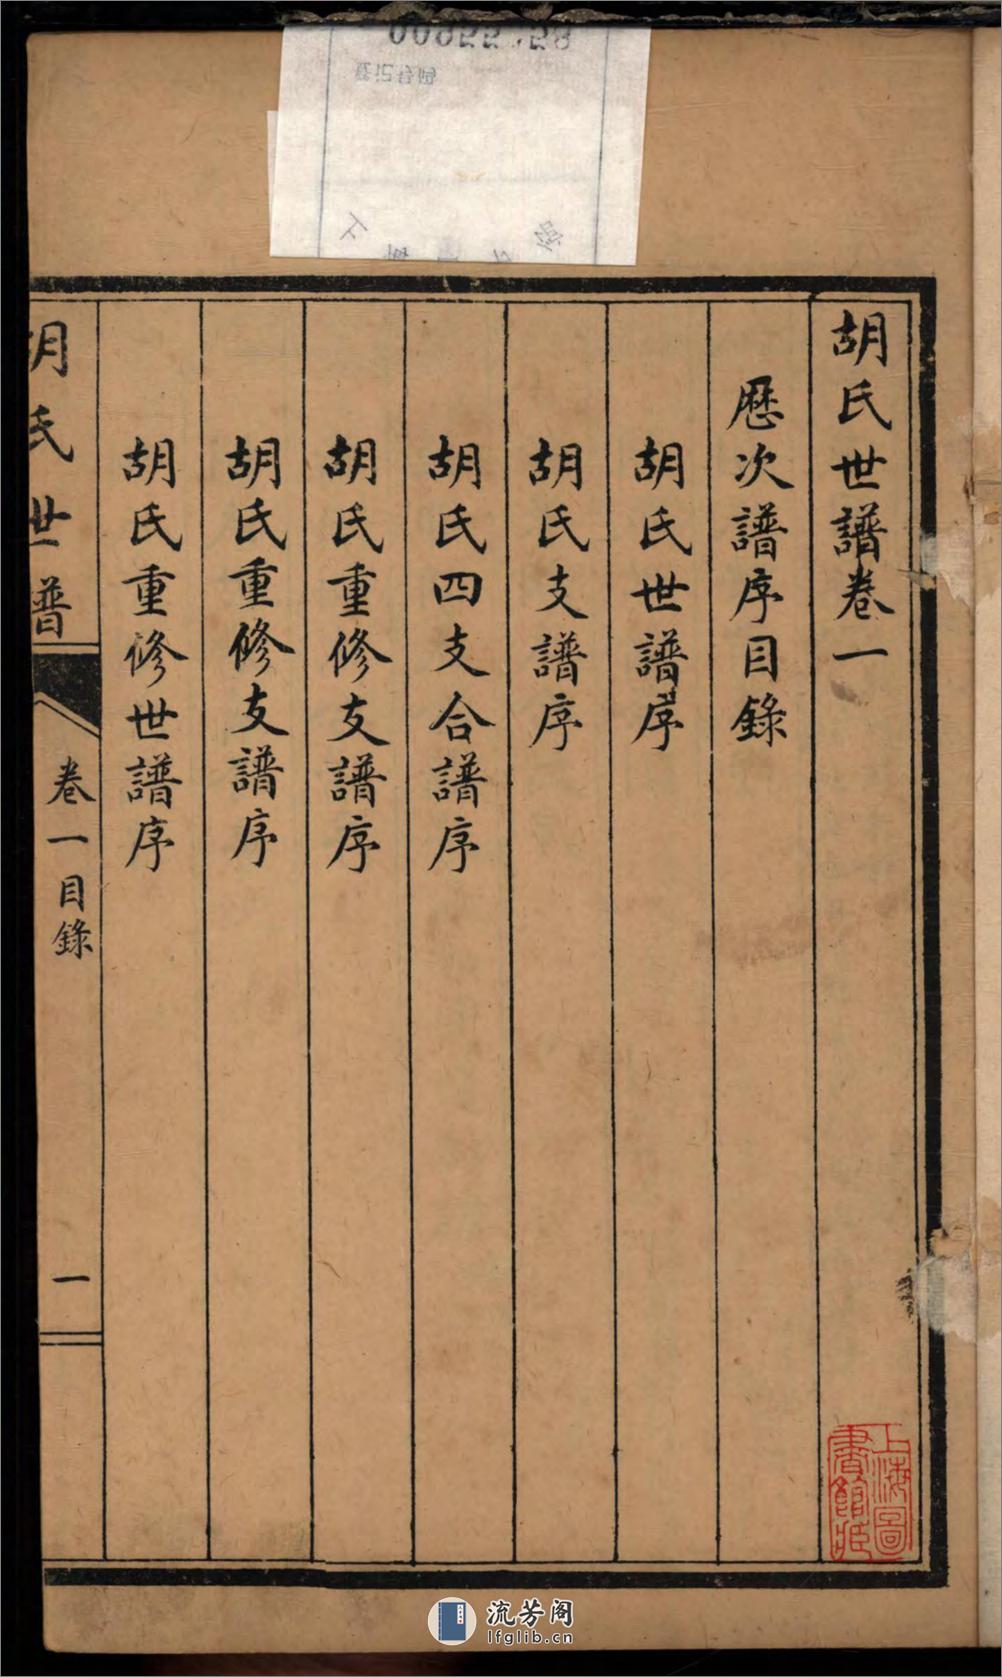 胡氏世譜卷一
歷次譜序目錄
胡氏世譜序
胡氏支譜序
胡氏四支合譜序
胡氏重修支譜序
胡氏重修支譜序
胡氏重修世譜序
胡氏世譜
卷一目錄
一
上海圖
書館藏
流芳阁
lfglib.cn